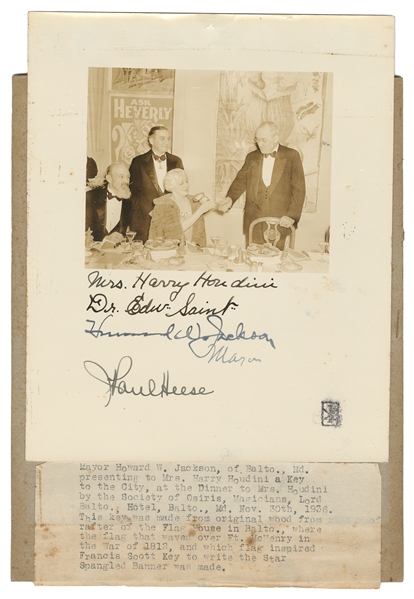 ASK
HEVERLY
Mrs. Harry Houdini
Dr. Edw. Saint
Howard W. Jackson
Mayor
Paul Heese
Mayor Howard W. Jackson, of Balto., Md.
presenting to Mrs. Harry Houdini a Key
to the City, at the Dinner to Mrs. Houdini
by the Society of Osiris, Magicians, Lord
Balto., Hotel, Balto., Md. Nov. 30th, 1936.
This key was made from original wood from
rafter of the Flag House in Balto., where
the flag that waved over Ft. McHenry in
the War of 1812, and which flag inspired
Francis Scott Key to write the Star
Spangled Banner was made.